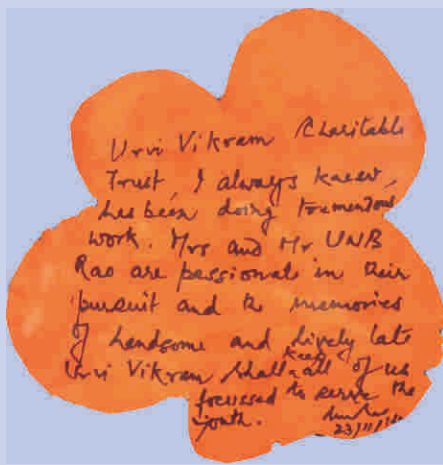 Urvi Vikram Charitable
Trust, I always knew,
has been doing tremendous
work. Mrs and Mr UNB
Rao are passionate in their
pursuit and the memories
of handsome and lively late
Urvi Vikram shall keep all of us
focussed to serve the
youth.
23/11/